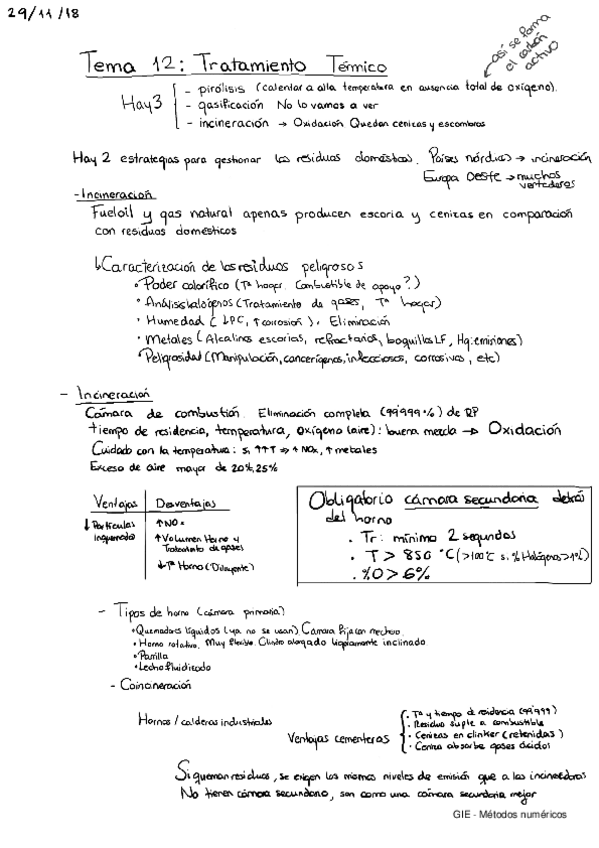 29/11/18
así se forma
el carbón
activo
Tema 12: Tratamiento Térmico
Hay 3
- pirólisis (calentar a alta temperatura en ausencia total de oxígeno).
- gasificación No lo vamos a ver
- incineración → Oxidación Quedan cenizas y escombros
Hay 2 estrategias para gestionar los residuos domésticos. Países nórdicos → incineración
Europa Oeste → muchos
vertederos
- Incineración
Fueloil y gas natural apenas producen escoria y cenizas en comparación
con residuos domésticos
↳ Caracterización de los residuos peligrosos
• Poder calorífico (Tª hogar. Combustible de apoyo?)
• Análisis halógenos (Tratamiento de gases, Tª hogar)
• Humedad (↓PC, ↑corrosión). Eliminación
• Metales (Alcalinos escorias, refractarios, boquillas LF, Hg: emisiones)
• Peligrosidad (Manipulación, cancerígenos, infecciosos, corrosivos, etc)
- Incineración
Cámara de combustión. Eliminación completa (99'999%) de RP
tiempo de residencia, temperatura, oxígeno (aire): buena mezcla → Oxidación
Cuidado con la temperatura: si ↑↑T ⇒ ↑NOx, ↑metales
Exceso de aire mayor de 20%, 25%
Ventajas | Desventajas
↓ Partículas
inquemados
↑NOx
↑Volumen Horno y
Tratamiento de gases
↓Tª Horno (Diluyente)
Obligatorio cámara secundaria detrás
del horno
. Tr: mínimo 2 segundos
. T > 850 °C (>1100°C si % Halógenos >1%)
. %O > 6%
- Tipos de horno (cámara primaria)
• Quemadores líquidos (ya no se usan) Cámara fija con mechero.
• Horno rotativo. Muy flexible. Cilindro alargado ligeramente inclinado.
• Parrilla
• Lecho fluidizado
- Coincineración
Hornos / calderas industriales
Ventajas cementeras
• Tª y tiempo de residencia (99'999)
• Residuo suple a combustible
• Cenizas en clinker (retenidas)
• Ceniza absorbe gases ácidos
Si queman residuos, se exigen los mismos niveles de emisión que a las incineradoras
No tienen cámara secundaria, son como una cámara secundaria mejor
GIE - Métodos numéricos